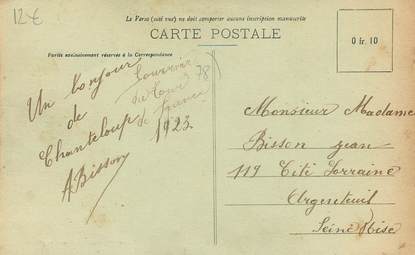 12€
Le Verso (côté vue) ne doit comporter aucune inscription manuscrite
CARTE POSTALE
0 fr. 10
Partie exclusivement réservée à la Correspondance
78
Un bonjour
de
Chanteloup
1923.
ABisson
Souvenir
du tour
de france
Monsieur Madame
Bisson jean
119 Cité Lorraine
Argenteuil
Seine & Oise